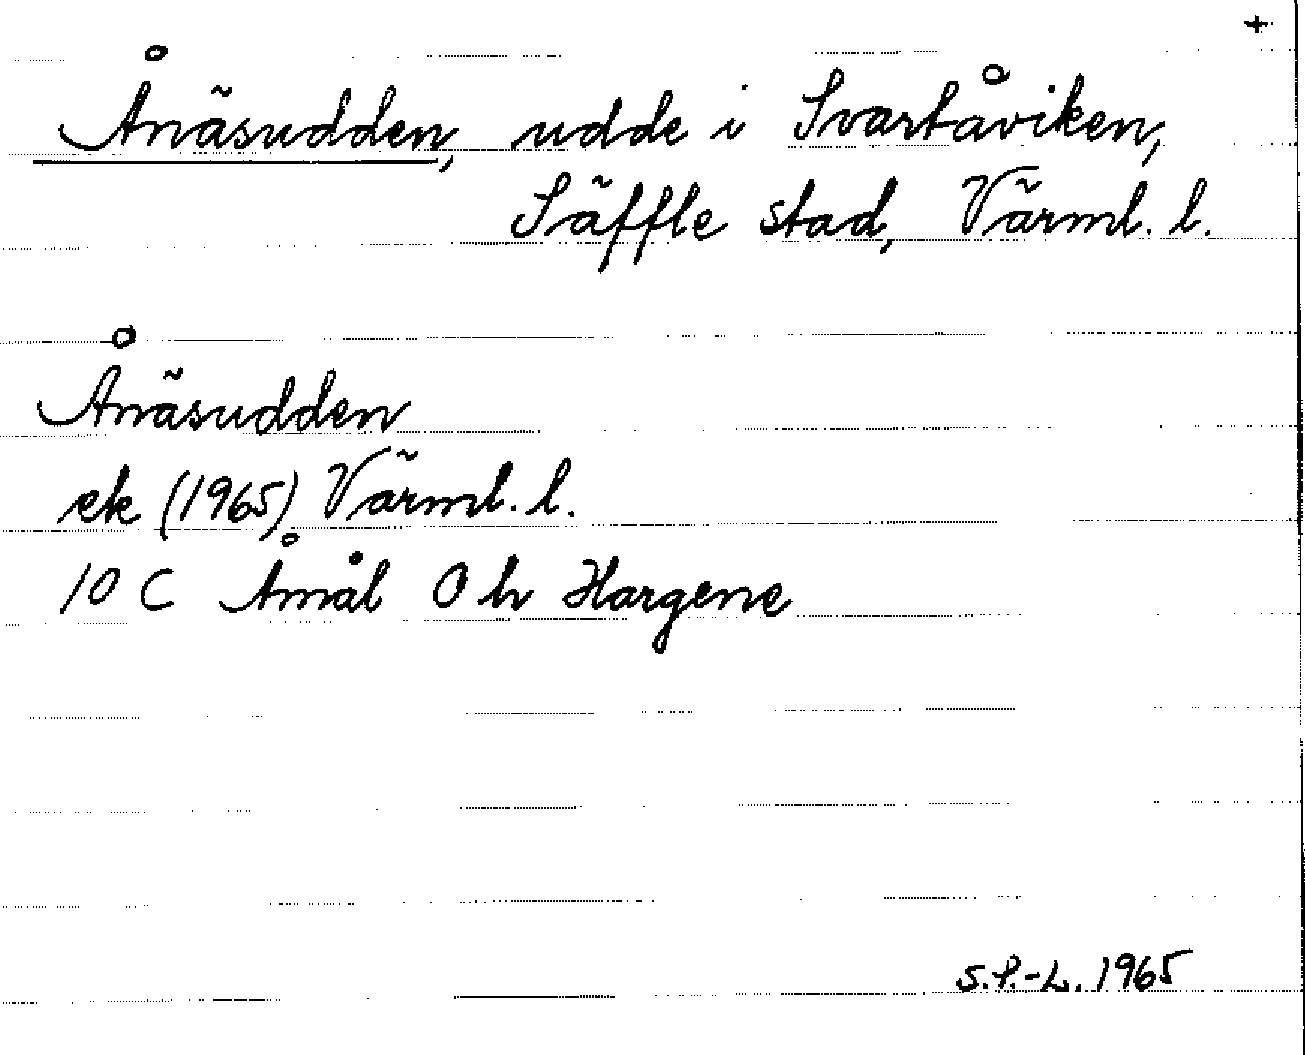 +
Ånäsudden, udde i Svartåviken,
Säffle stad, Värml. l.
Ånäsudden
ek (1965) Värml. l.
10 C Åmål 0 h Hargene
S.P.-L. 1965